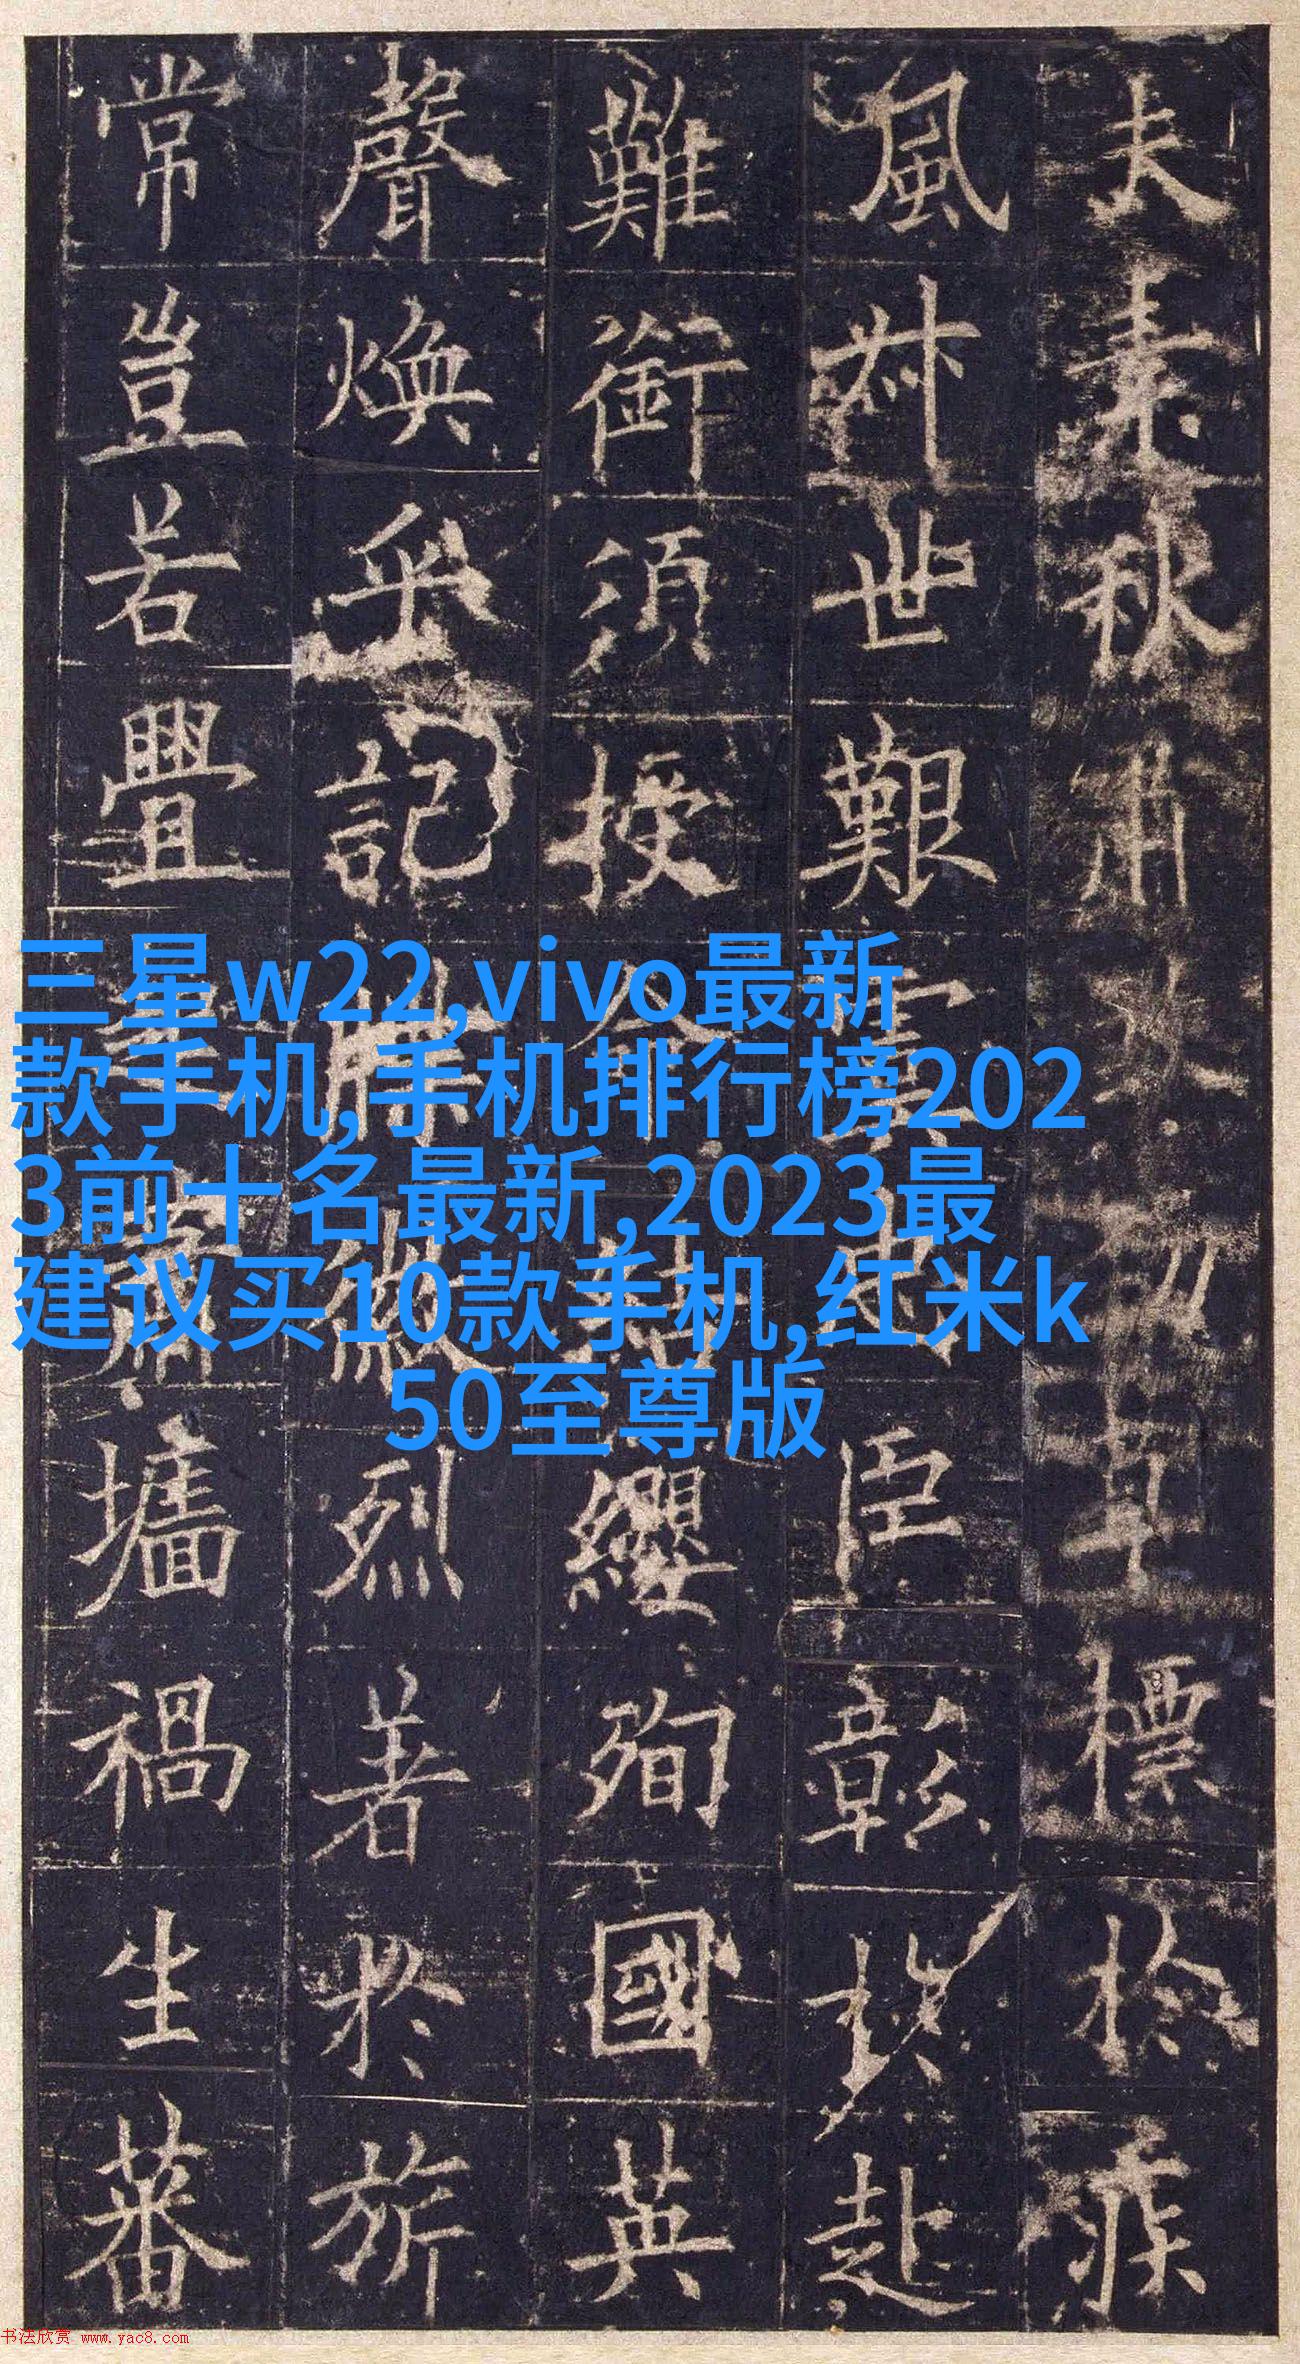 三星w22,vivo最新
款手机,手机排行榜202
3前十名最新,2023最
建议买10款手机,红米k
50至尊版
夫素秋肅勁草標於疾
風叔世艱虞忠臣彰於赴
難銜須授命結纓殉國英
聲煥乎記牒徽烈著於旂
常豈若舋起蕭墻禍生蕃
书法欣赏 www.yac8.com